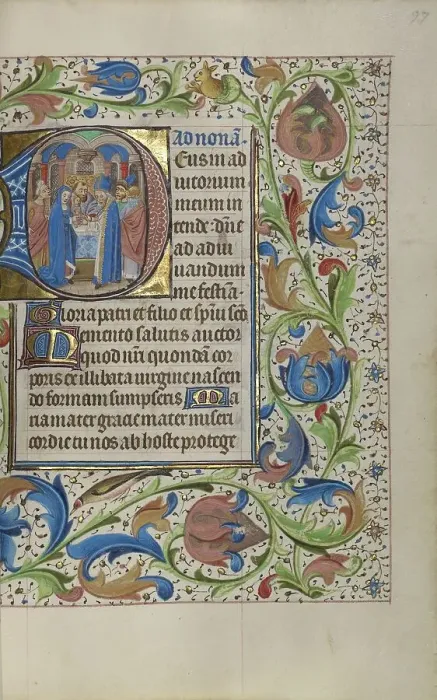 97
Ad nonā.
Deus in ad
iutorium
meum in
tende· dn̄e
ad adiu
uandum
me festi a·
Gloria patri et filio et spūi scō
Memento salutis auctor
quod nr̄i quondā cor
poris ex illibata uirgine nascen
do formam sumpseris Ma
ria mater gracie mater miseri
cordie tu nos ab hoste protege